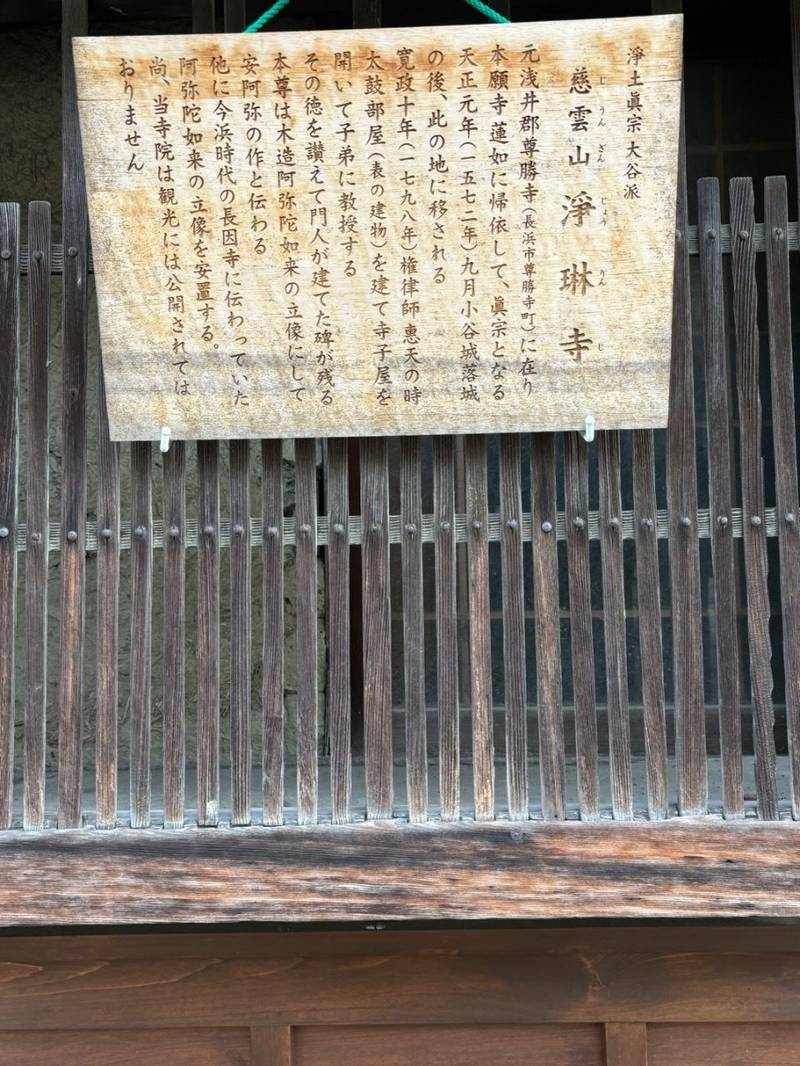 浄土眞宗 大谷派
慈雲山 淨琳寺
じ うん ざん じょう りん じ
元浅井郡尊勝寺(長浜市尊勝寺町)に在り
本願寺蓮如に帰依して、眞宗となる
天正元年(一五七二年)九月小谷城落城
の後、此の地に移される
寛政十年(一七九八年)権律師 惠天の時
太鼓部屋(表の建物)を建て寺子屋を
開いて子弟に教授する
その徳を讃えて門人が建てた碑が残る
本尊は木造阿弥陀如来の立像にして
安阿弥の作と伝わる
他に今浜時代の長因寺に伝わっていた
阿弥陀如来の立像を安置する。
尚、当寺院は観光には公開されては
おりません